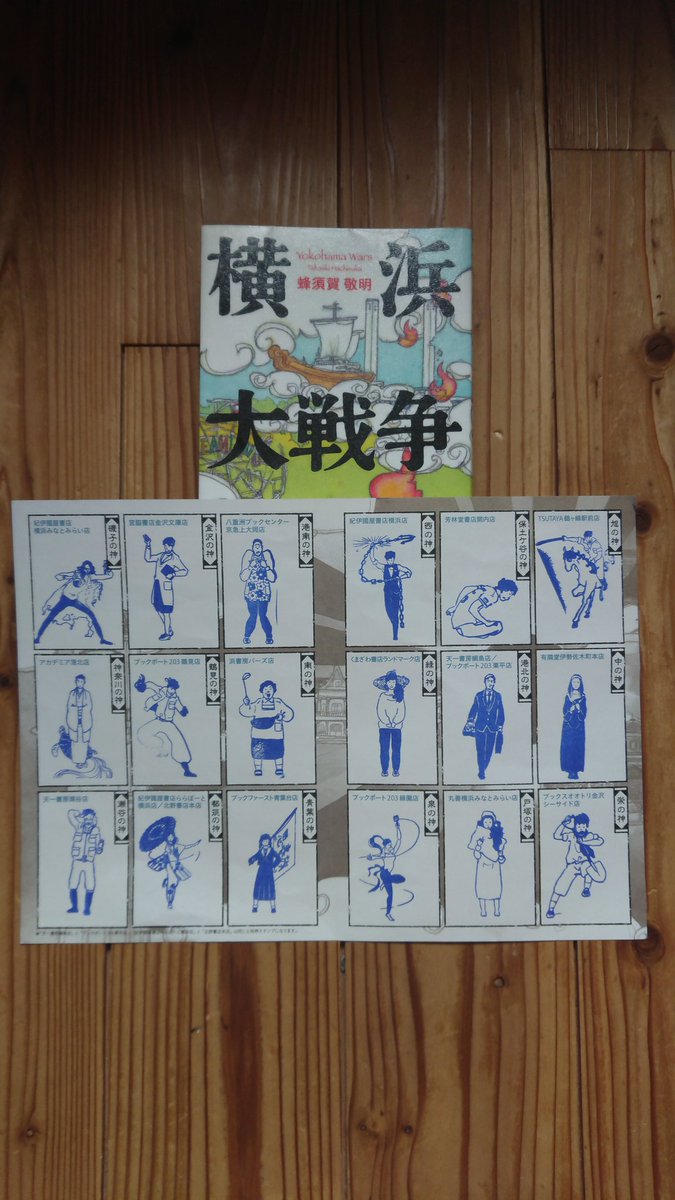 横浜
Yokohama Wars
Takaaki Hachisuka
蜂須賀 敬明
大戦争
紀伊國屋書店
横浜みなとみらい店
磯子の神
宮脇書店金沢文庫店
金沢の神
八重洲ブックセンター
京急上大岡店
港南の神
紀伊國屋書店横浜店
西の神
芳林堂書店関内店
保土ケ谷の神
TSUTAYA 鶴ヶ峰駅前店
旭の神
アカデミア港北店
神奈川の神
ブックポート203 鶴見店
鶴見の神
浜書房バーズ店
南の神
くまざわ書店ランドマーク店
緑の神
天一書房綱島店/
ブックポート203 栗平店
港北の神
有隣堂伊勢佐木町本店
中の神
天一書房瀬谷店
瀬谷の神
紀伊國屋書店ららぽーと
横浜店/北野書店本店
都筑の神
ブックファースト青葉台店
青葉の神
ブックポート203 緑園店
泉の神
丸善横浜みなとみらい店
戸塚の神
ブックスオオトリ金沢
シーサイド店
栄の神